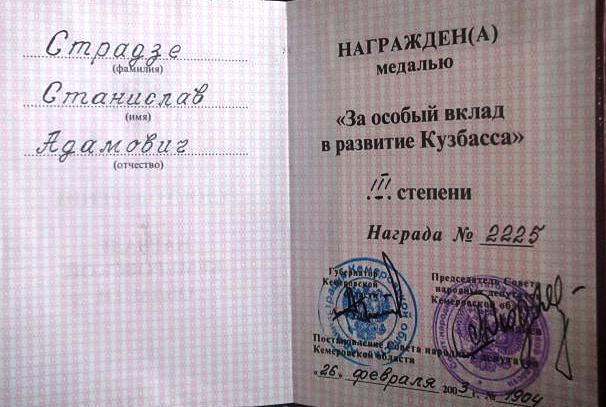 Страдзе
(фамилия)
Станислав
(имя)
Адамович
(отчество)
НАГРАЖДЕН(А)
медалью
«За особый вклад
в развитие Кузбасса»
III степени
Награда № 2225
Губернатор
Кемеровской
Председатель Совета
народных депутатов
Кемеровской
Постановление Совета народных депутатов
Кемеровской области
«26» февраля 2003 г. № 1904